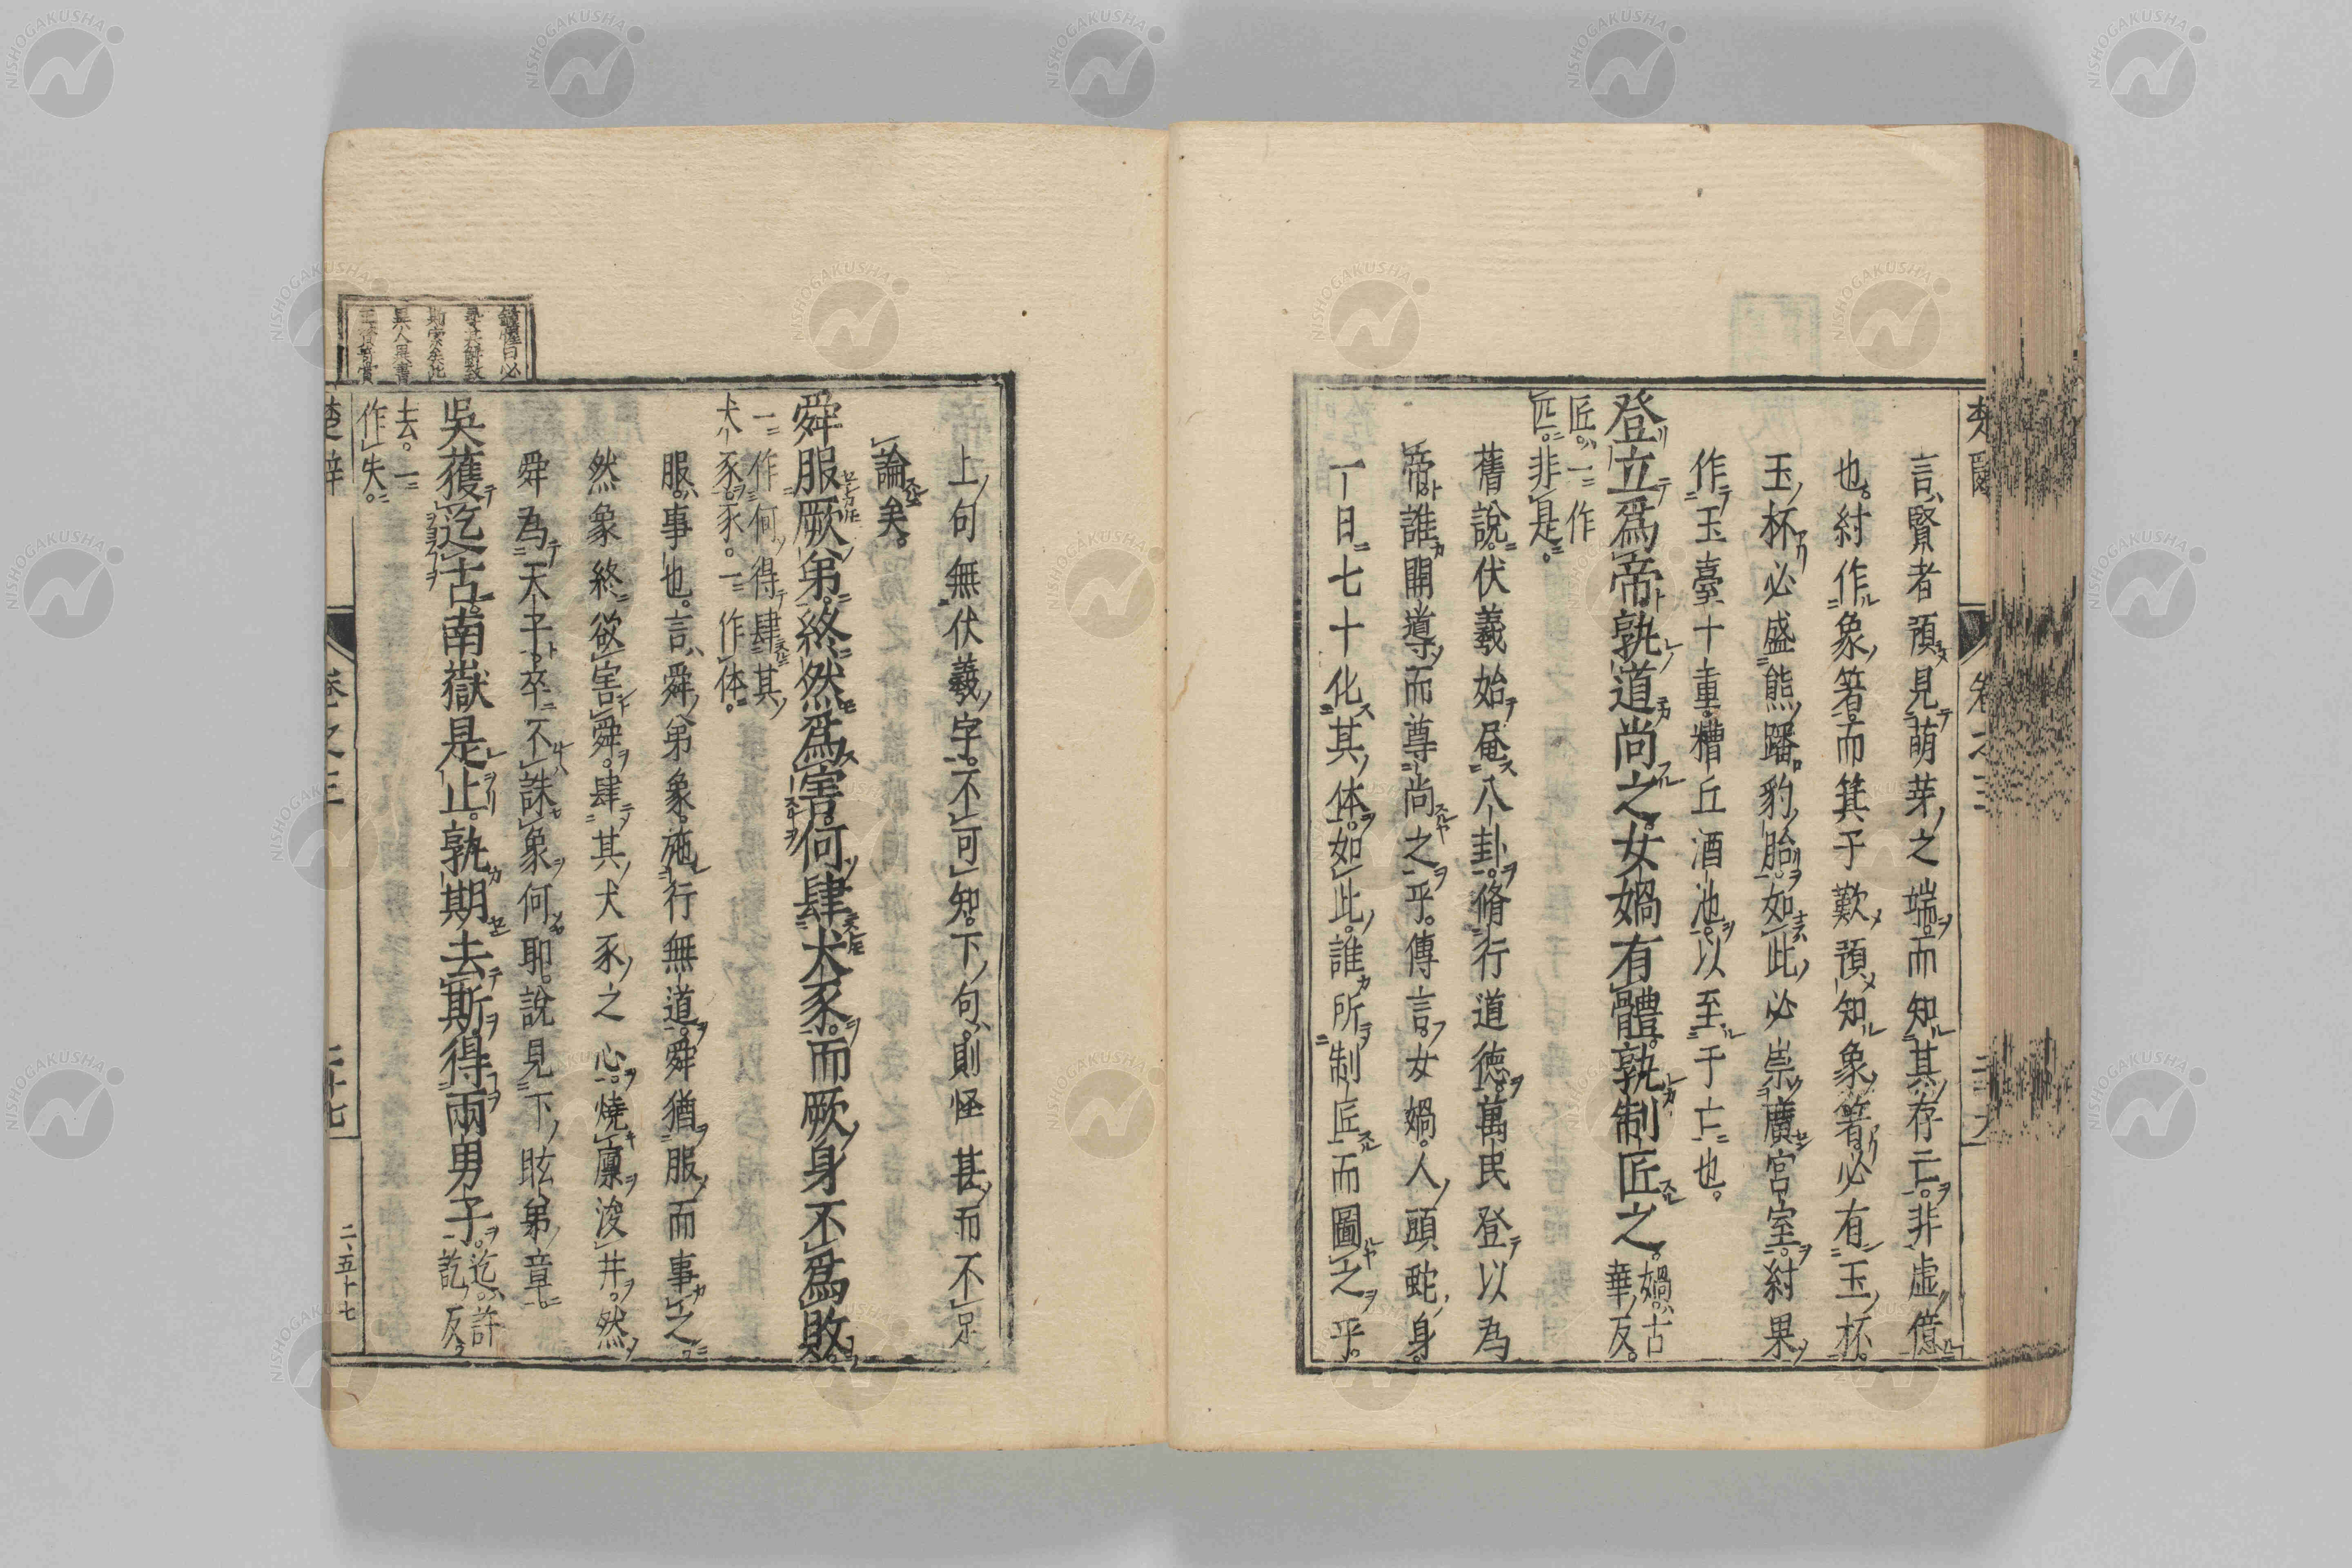 言賢者預見萌芽之端而知其存亡非虛億
也紂作象箸而箕子歎預知象箸必有玉杯
玉杯必盛熊蹯豹胎如此必崇廣宮室紂果
作玉臺十重糟丘酒池以至于亡也。
登立爲帝孰道尚之女媧有體孰制匠之。媧古
華反。
匠一作
匹非是。
舊說伏羲始画八卦脩行道德萬民登以為
帝誰開導而尊尚之乎。傳言女媧人頭蛇身。
一日七十化其体如此誰所制匠而圖之乎。
上句無伏羲字不可知下句則怪甚而不足
論矣。
舜服厥弟終然爲害何肆犬豕而厥身不爲敗。
一作何得肆其
犬豕豕。一作体。
服事也。言舜弟象施行無道舜猶服而事之
然象終欲害舜肆其犬豕之心燒廩浚井。然
舜為天子卒不誅象何耶。說見下眩弟章。
吳獲迄古南嶽是止孰期去斯得兩男子迄許
訖反
去。一
作失。
楚辭 卷之三 二十七
二、五十七
NISHOGAKUSHA